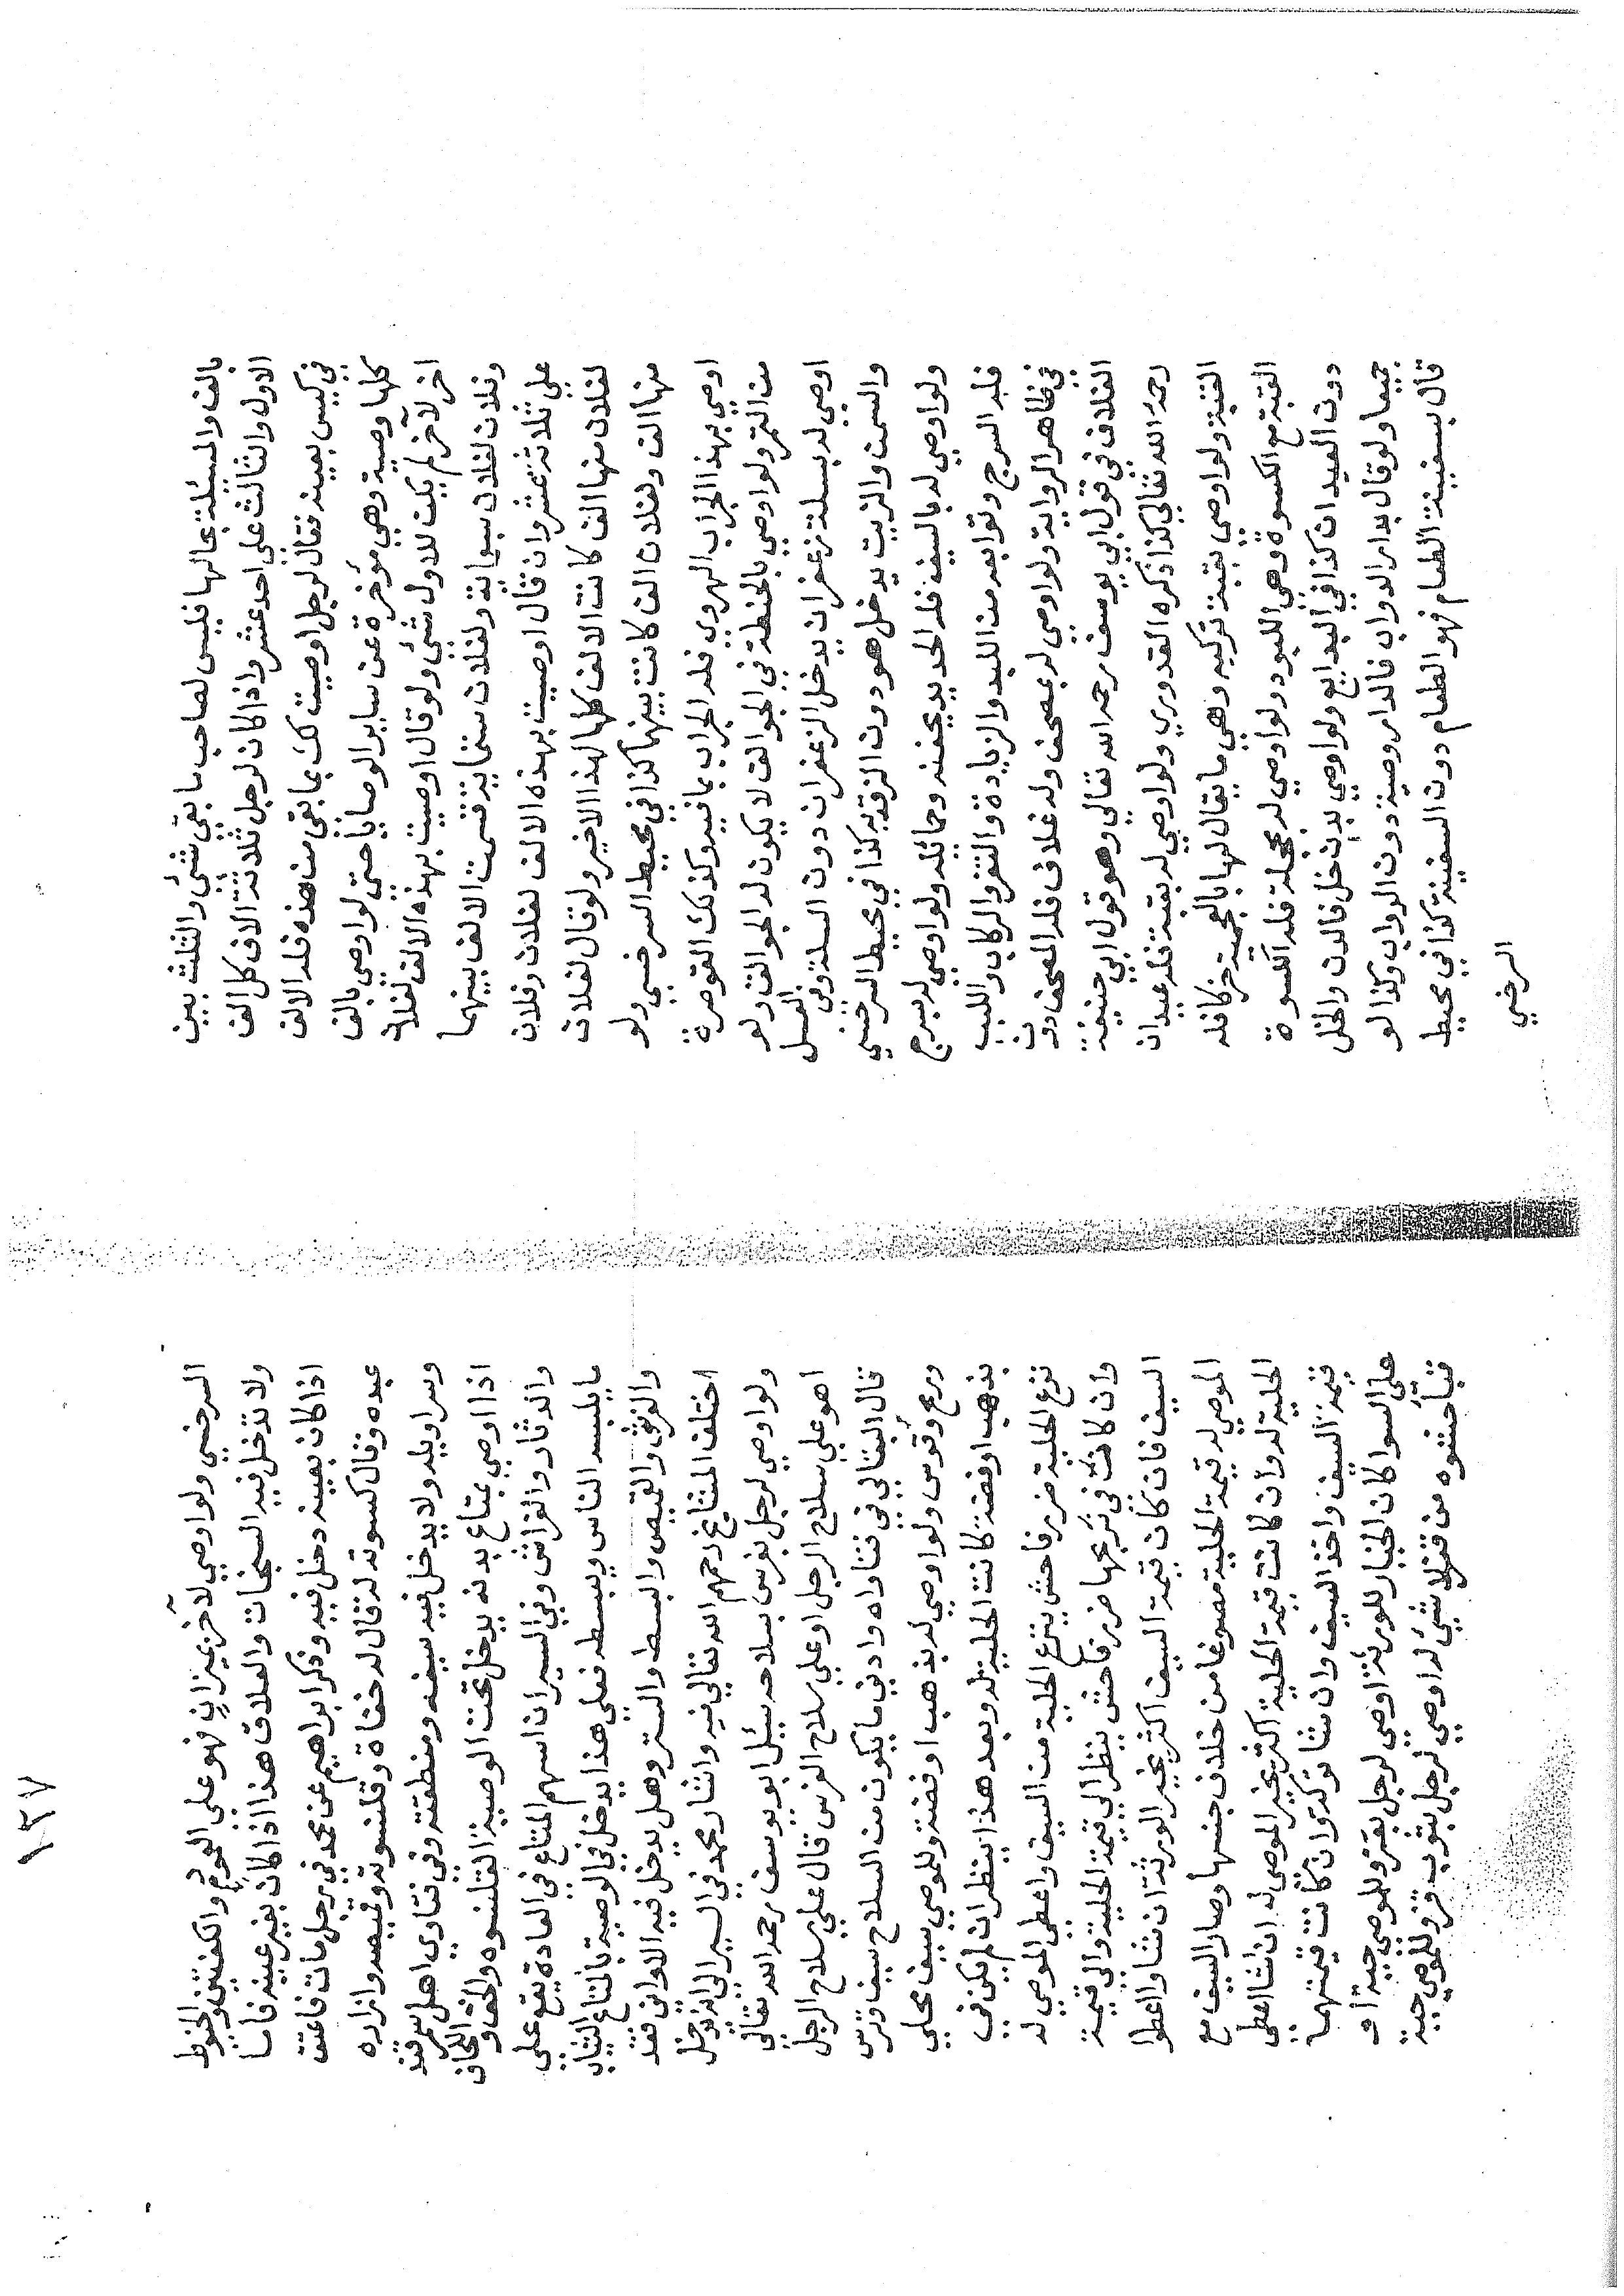 بالف والمسيلة بحالها فليس لصاحب ما بقي شئ والثلث بين
الاول والثالث علي احد عشر واذا كان لرجل ثلاثة الاف كل الف
في كيس بعينه فقال لرجل اوصيت لك بما بقي من هذه فله الالف
كلها وصية وهي مؤخرة عن ساير الوصايا حتي لو اوصي بالف
اخر لآخر لم يكن للاول شئ ولو قال اوصيت بهذه الالف لفلان
وفلان لفلان سبعماية ولفلان ستماية قسمت الالف بينهما
علي ثلاثة عشر وان قال اوصيت بهذه الالف لفلان وفلان
لفلان منها الف كانت الالف كلها لهذا الاخير ولو قال لفلان
منها الف ولفلان الف كانت بينهما كذا في محيط السرخسي ولو
اوصي بهذا الجراب الهروي فله الجراب بما فيه وكذلك القوصرة
من التمر ولو اوصي بالحنطة في الجوالق لا يكون له الجوالق ولو
اوصي له بسلة زعفران يدخل الزعفران دون السلة وفي العسل
والسمن والزيت يدخل هو دون الزق به كذا في محيط السرخسي
ولو اوصي له بالسيف فله الحديد بجفنه وحمائله ولو اوصي له بسرج
فله السرج وتوابعه من اللبد والزيادة والثفر والركاب واللبب
في ظاهر الرواية ولو اوصي له بمصحف وله غلاف فله المصحف دون
الغلاف في قول ابي يوسف رحمه الله تعالي وهو قول ابي حنيفة
رحمه الله تعالي كذا ذكره القدوري ولو اوصي له بقبة فله عيدان
القبة ولو اوصي بقبة تركيه وهي ما يقال لها بالعجمية خركافله
القبة مع الكسوة وهي اللبود ولو اوصي له بحجلة فله الكسوة
دون العيدان كذا في البدايع ولو اوصي بدن خل فالدن والخل
جميعا ولو قال بدار الدواب فالدار وصية دون الدواب وكذا لو
قال بسفينة الطعام فهو الطعام دون السفينة كذا في محيط
السرخسي
١٣٧
السرخسي ولو اوصي لآخر بميزان فهو علي العمود والكفتين والخيوط
ولا تدخل فيه السنجات والعلاق هذا اذا كان بغير عينه فاما
اذا كان بعينه دخل فيه وذكر ابراهيم عن محمد في رجل مات فاعتق
عبده وقال كسوته له قال له خفاه وقلنسوته وقميصه وازاره
وسراويله ولا يدخل فيه سيفه ومنطقته وفي فتاوي اهل سمرقند
اذا اوصي بمتاع بدنه يدخل تحت الوصية القلنسوه والخف واللحاف
والدثار والفراش وفي السير ان اسم المتاع في العادة يقع علي
ما يلبسه الناس ويبسطه فعلي هذا يدخل في الوصية بالمتاع الثياب
والفرش والقميص والبسط والستر وهل يدخل فيه الاواني فقد
اختلف المشايخ رحمهم الله تعالي فيه واشار محمد في السير الي انه لا يدخل
ولو اوصي لرجل بفرس بسلاحه سيئل ابو يوسف رحمه الله تعالي
اهو علي سلاح الرجل او علي سلاح الفرس قال علي سلاح الرجل
قال البقالي في فتاواه وادني ما يكون من السلاح سيف وترس
ورمح وقوس ولو اوصي له بذهب او فضة وللموصي سيف محلي
بذهب او فضة كانت الحلية له وبعد هذا ينظر ان لم يكن في
نزع الحلية ضرر فاحش ينزع الحلية من السيف واعطي الموصي له
وان كانت في نزعها ضرر فاحش ينظر الي قيمة الحلية والي قيمة
السيف فان كان قيمة السيف اكثر يخير الورثة ان شاوا اعطوا
الموصي له قيمة الحلية مصوغا من خلاف جنسها وصار السيف مع
الحلية له وان كانت قيمة الحلية اكثر يخير الموصي له ان شا اعطي
قيمة السيف واخذ السيف وان شا تركه وان كانت قيمتهما
علي السوا كان الخيار للورثة اوصي لرجل بقز وللموصي جبة او
قبا حشوه من قز لا شئ له اوصي لرجل بثوب قز وللموصي جبة